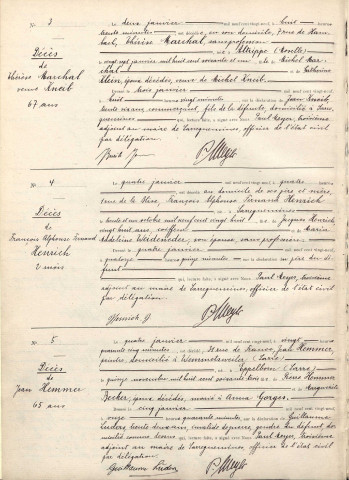 N° 3
Décès
de
Thérèse Marchal
veuve Kneib
67 ans
Le deux janvier mil neuf cent vingt-neuf, à huit heures
trente minutes est décédée, en son domicile,
Thérèse Marchal, sans profession
née à Altrippe (Moselle)
le vingt janvier mil huit cent soixante et un de Michel Mar-
chal et de Catherine
Klein, époux décédés, veuve de Michel Kneib.
Dressé le trois janvier mil neuf cent vingt-neuf, à
huit heures vingt minutes, sur la déclaration de Jean Kneib,
trente six ans, commerçant, fils de la défunte, domicilié à Sarre-
guemines qui, lecture faite, a signé avec Nous Paul Meyer, troisième
adjoint au maire de Sarreguemines, officier de l'état civil
par délégation.
N° 4
Décès
de
François Alphonse Fernand
Henrich
2 mois
Le quatre janvier mil neuf cent vingt-neuf, à quatre heures
est décédé au domicile de ses père et mère
François Alphonse Fernand Henrich
né à Sarreguemines
le trente et un octobre mil neuf cent vingt huit de Jacques Henrich
vingt huit ans, coiffeur et de Maria
Madeleine Weideneder, son épouse, sans profession.
Dressé le quatre janvier mil neuf cent vingt-neuf, à
quatorze heures cinq minutes, sur la déclaration du père du dé-
funt
qui, lecture faite, a signé avec Nous Paul Meyer, troisième
adjoint au maire de Sarreguemines, officier de l'état civil
par délégation.
N° 5
Décès
de
Jean Hemmer
65 ans
Le quatre janvier mil neuf cent vingt-neuf, à vingt heures
quarante cinq minutes est décédé Jean Hemmer,
peintre, domicilié à Wemmetsweiler (Sarre)
né à Eppelborn (Sarre)
le quinze novembre mil huit cent soixante trois de Pierre Hemmer
et de Marguerite
Becker, époux décédés, marié à Anna Gorges.
Dressé le cinq janvier mil neuf cent vingt-neuf, à
onze heures quarante minutes, sur la déclaration de Guillaume
Luedors, trente deux ans, invalide de guerre, gendre du défunt, do-
micilié comme dessus qui, lecture faite, a signé avec Nous Paul Meyer, troisième
adjoint au maire de Sarreguemines, officier de l'état civil
par délégation.